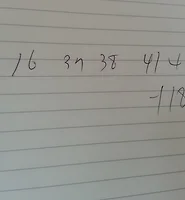 16 37 38 41 +
-118